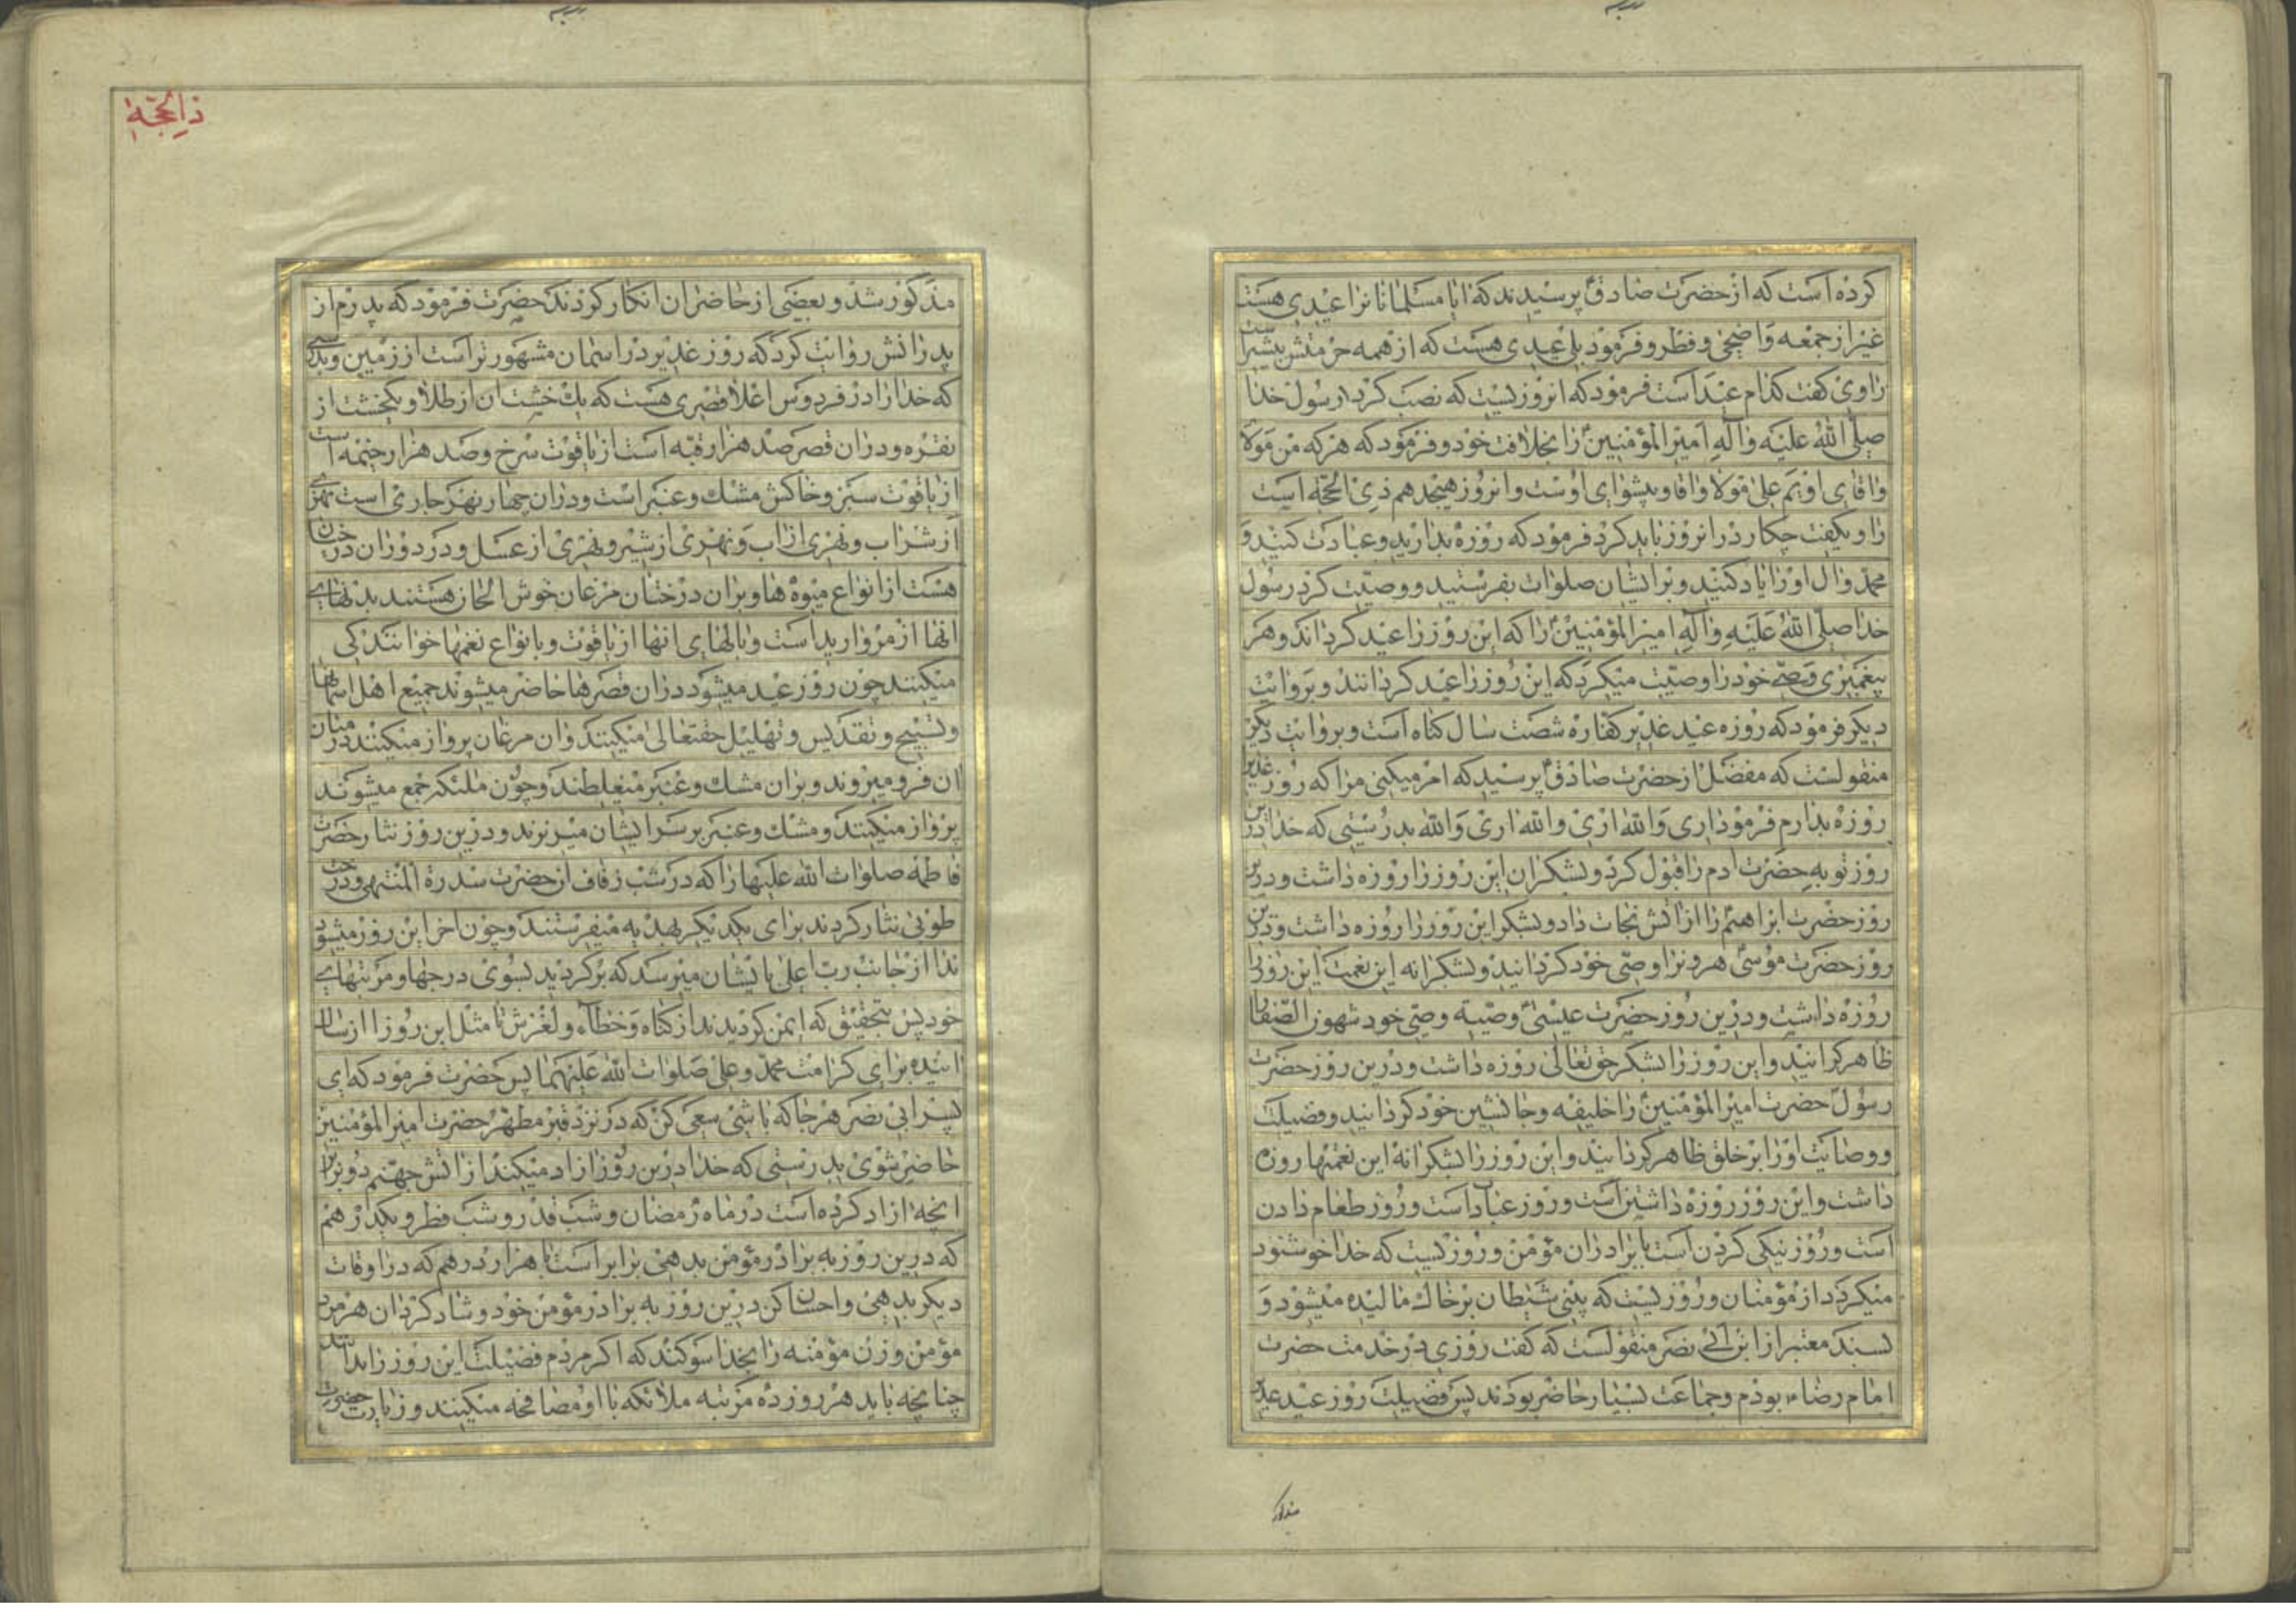 کرده است که از حضرت صادق پرسیدند که ایا مسلمانانرا عیدی هست
غیر از جمعه و اضحی و فطر و فرمود بلی عیدی هست که از همه حرمتش بیشتر است
راوی گفت کدام عید است فرمود که انروزیست که نصب کرد رسول خدا
صلی الله علیه واله امیرالمؤمنین را بخلافت خود و فرمود که هر که من مولا
واقای اویم علی مولا واقا وپیشوای اوست وانروز هیجدهم ذی الحجه است
راوی گفت چکار در انروز باید کرد فرمود که روزه بدارید وعبادت کنید و
محمد وال اورا یاد کنید وبر ایشان صلوات بفرستید ووصیت کرد رسول
خدا صلی الله علیه وآله امیرالمؤمنین را که این روز را عید گرداند وهر
پیغمبری وصی خود را وصیت میکرد که این روز را عید گردانند وبروایت
دیگر فرمود که روزه عید غدیر کفاره شصت سال گناه است وبروایت دیگر
منقولست که مفضل از حضرت صادق پرسید که امر میکنی مرا که روز غدیر
روزه بدارم فرمود اری والله اری والله اری والله بدرستی که خدا درین
روز توبه حضرت ادم را قبول کرد وبشکر ان این روز را روزه داشت ودرین
روز حضرت ابراهیم را از اتش نجات داد وبشکر این روز را روزه داشت ودرین
روز حضرت موسی هرونرا وصی خود گردانید وبشکرانه این نعمت این روز را
روزه داشت ودرین روز حضرت عیسی وصیه وصی خود شمعون الصفا را
ظاهر گرانید واین روز را بشکر حق تعالی روزه داشت ودرین روز حضرت
رسول حضرت امیرالمؤمنین را خلیفه وجانشین خود گردانید وفضیلت
ووصایت اورا بر خلق ظاهر گردانید واین روز را بشکرانه این نعمتها روزه
داشت واین روز روزه داشتن است وروز عبادت است وروز طعام دادن
است وروز نیکی کردن است با برادران مؤمن وروزیست که خدا خوشنود
میگردد از مؤمنان وروزیست که بینی شیطان بر خاک مالیده میشود و
بسند معتبر از ابن ابی نصر منقولست که گفت روزی در خدمت حضرت
امام رضا بودم وجماعت بسیار حاضر بودند پس فضیلت روز عید غدیر
مذکور
ذی الحجه
مذکور شد وبعضی از حاضران انکار کردند حضرت فرمود که پدرم از
پدرانش روایت کرد که روز غدیر در اسمان مشهور تر است از زمین وبدرستی
که خدا را در فردوس اعلا قصری هست که یک خشت ان از طلا ویکخشت از
نقره ودران قصر صد هزار قبه است از یاقوت سرخ وصد هزار خیمه است
از یاقوت سبز وخاکش مشک وعنبر است ودران چهار نهر جاری است نهری
از شراب ونهری از اب ونهری از شیر ونهری از عسل ودر دور ان درختان
هست از انواع میوه ها وبران درختان مرغان خوش الحان هستند بدنهای
انها از مروارید است وبالهای انها از یاقوت وبانواع نغمها خوانندگی
میکنند چون روز عید میشود دران قصرها حاضر میشوند جمیع اهل اسمانها
وتسبیح وتقدیس وتهلیل حقتعالی میکنند وان مرغان پرواز میکنند در میان
ان فرو میروند وبران مشک وعنبر میغلطند وچون ملئکه جمع میشوند
پرواز میکنند ومشک وعنبر بر سر ایشان میریزند ودرین روز نثار حضرت
فاطمه صلوات الله علیها را که در شب زفاف انحضرت سدرة المنتهی ودرخت
طوبی نثار کردند برای یکدیگر بهدیه میفرستند وچون اخر این روز میشود
ندا از جانب رب اعلی بایشان میرسد که برگردید بسوی درجها ومرتبهای
خود پس بتحقیق که ایمن گردیدند از گناه وخطاء ولغزش تا مثل این روز از سال
اینده برای کرامت محمد وعلی صلوات الله علیهما پس حضرت فرمود که ای
پسر ابی نصر هر جا که باشی سعی کن که در نزد قبر مطهر حضرت امیرالمؤمنین
حاضر شوی بدرستی که خدا درین روز ازاد میکند از اتش جهنم دو برابر
انچه ازاد کرده است در ماه رمضان وشب قدر وشب فطر ویکدرهم
که درین روز به برادر مؤمن بدهی برابر است با هزار درهم که در اوقات
دیگر بدهی واحسان کن درین روز به برادر مؤمن خود وشاد گردان هر مرد
مؤمن وزن مؤمنه را بخدا سوگند که اگر مردم فضیلت این روز را بدانند
چنانچه باید هر روز ده مرتبه ملائکه با او مصافحه میکنند وزیارت حضرت